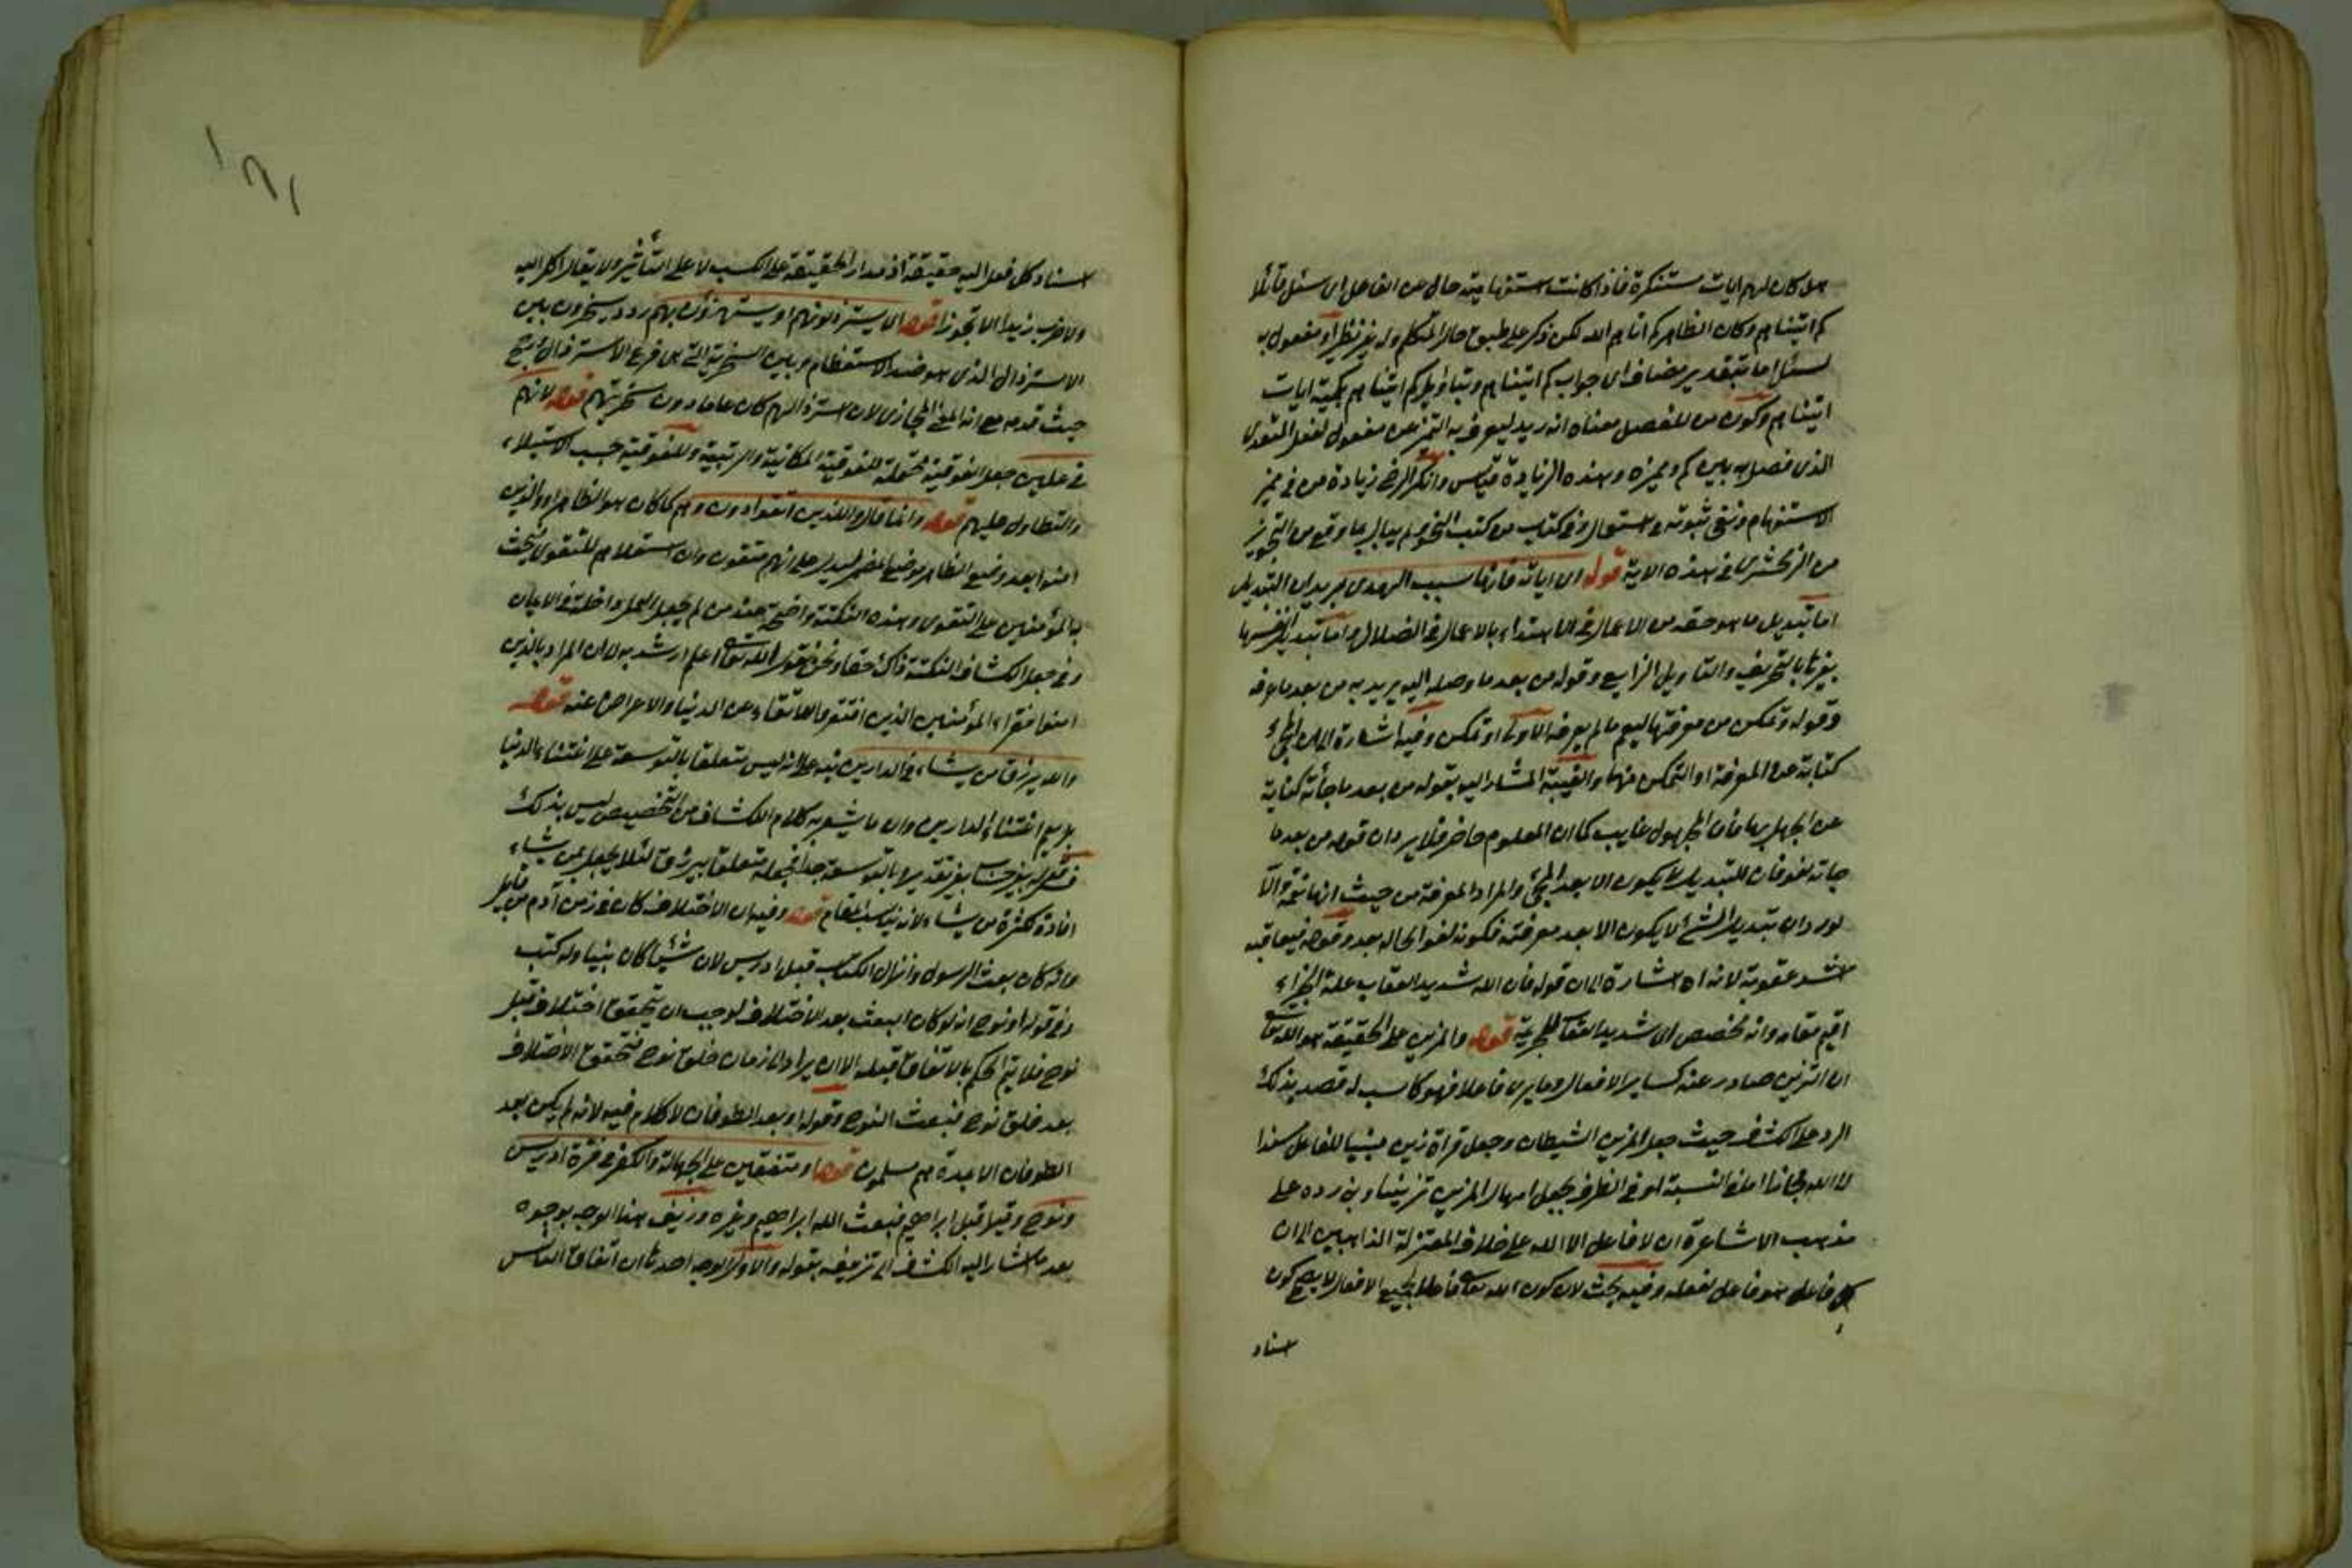 هل كان لهم ايات مستنكرة فاذا كانت استفهامية حال من الفاعل اى سئل قائلا
كم اتيناهم وكان الظاهر كم اتاهم الله لكن ذكر على طبق حال المتكلم وله غير نظير او مفعول به
لسئل اما بتقدير مضاف اى جواب كم اتيناهم وبتاويل كم اتيناهم بكمية ايات
اتيناهم وكون من للفصل معناه انه زيد ليعرف به التميز عن مفعول لفعل المتعدى
الذى فصل به بين كم ومميزه وهذه الزيادة قياس وانكر الرضى زيادة من فى مميز
الاستفهام ونفى ثبوته واستعماله فى كتاب من كتب النحو ولم يبال بما وقع من التجويز
من الزمخشرى فى هذه الاية قوله اى اياته فانها سبب الهدى يريد ان التبديل
اما تبديل ما هو حقه من الاعمال فى الاهتداء بالاعمال فى الضلال واما تبديل نفسها
بغيرها بالتحريف والتاويل الزايع وقوله من بعد ما وصله اليه يريد به من بعد ما عرفه
وقوله وتمكن من معرفتها ليعم ما لم يعرفه الاولى او تمكن وفيه اشارة الى ان المجئ
كناية عن المعرفة او التمكن منها والغيبة المشار اليه بقوله من بعد ما جاءته كناية
عن الجهل بها فان المجهول غايب كما ان المعلوم حاضر فلا يرد ان قوله من بعد ما
جاته لغو فان التبديل لا يكون الا بعد المجئ والمراد المعرفة من حيث انها نعمة والا
لورد ان تبديل الشئ لا يكون الا بعد معرفته فكونه لغوا بحاله بعد وقوله فيعاقبه
اشد عقوبة لانه اه اشارة الى ان قوله فان الله شديد العقاب علة الجزاء
اقيم مقامه وانه مخصص اى شديد العقاب للجريمة قوله والمزين على الحقيقة هو الله تعالى
ان التزيين صادر عنه كساير الافعال وما يرى فاعلا فهو كاسب له قصد بذلك
الرد على الكشاف حيث جعل المزين الشيطان وجعل قراة زين مبنيا للفاعل مسندا
لا الله مجازا اما فى النسبة او فى الطرف بجعل امهال المزين تزيينا وبنى رده على
مذهب الاشاعرة ان لا فاعل الا الله على خلاف المعتزلة الذاهبين الى ان
كل فاعل هو فاعل لفعله وفيه بحث لان كون الله تعالى فاعلا لجميع الافعال لا يصحح كون
اسناد
اسناد كل فعل اليه حقيقة اذ مدار الحقيقة على الكسب لا على التأثير ولا يقال اكل اليه
ولا ضرب زيدا الا تجوزا قوله اى يسترذلونهم او يستهزؤن بهم ردد يسخرون بين
الاسترذال الذى هو ضد الاستعظام وبين السخرية التى هى فرع الاسترذال
حيث قدمه مع انه المعنى المجازى لان استرذالهم كان عاما دون سخريتهم قوله لانهم
فى عليين جعل الفوقية محتملة للفوقية المكانية والرتبية وللفوقية بحسب الاستيلاء
والتطاول عليهم قوله وانما قال والذين اتقوا دون وهم كما كان هو الظاهر او والذين
امنوا بعد وضع الظاهر موضع المضمر ليدل على انهم متقون وان استعلاءهم للتقوى
بالمؤمنين على التقوى وهذه النكتة واضحة عند من لم يجعل العمل داخلا فى الايمان
وفى جعل الكشاف النكتة ذاك خفاء ونحن نقول الله تعالى اعلم ارشد به الى ان المراد بالذين
امنوا فقراء المؤمنين الذين افتقروا للاتقاء عن الدنيا والاعراض عنه قوله
والله يرزق من يشاء فى الدارين نبه على انه ليس متعلقا بالتوسعة على اغنياء الدنيا
بل يعم اغنياء الدارين وان ما يشعر به كلام الكشاف من التخصيص ليس بذلك
قوله بغير حساب بغير تقدير بالتوسعة متعلقا بيرزق لئلا يجعل بمن يشاء
افادة لكثرة من يشاء لانه يناسب المقام قوله وفيه ان الاختلاف كان فى زمن آدم من قابيل
وانه كان بعث الرسول وانزال الكتاب قبل ادريس لان شيثا كان نبيا وله كتب
وفى قوله او نوح انه لو كان البعث بعد الاختلاف لوجب ان يتحقق اختلاف قبل
نوح فلا يتم الحكم بالاتفاق قبله الا ان يراد الى زمان خلق نوح فتحقق الاختلاف
بعد خلق نوح فبعث النوح وقوله او بعد الطوفان لا كلام فيه لانه لم يكن بعد
الطوفان الا عدة هم مسلمون قوله او متفقين على الجهالة والكفر فى فترة ادريس
ونوح وقيل قبل ابراهيم فبعث الله ابراهيم وغيره وزيف هذا الوجه بوجوه
بعد ما اشار اليه الكشاف الى تزييفه بقوله والاول الوجه احدها ان اتفاق الناس